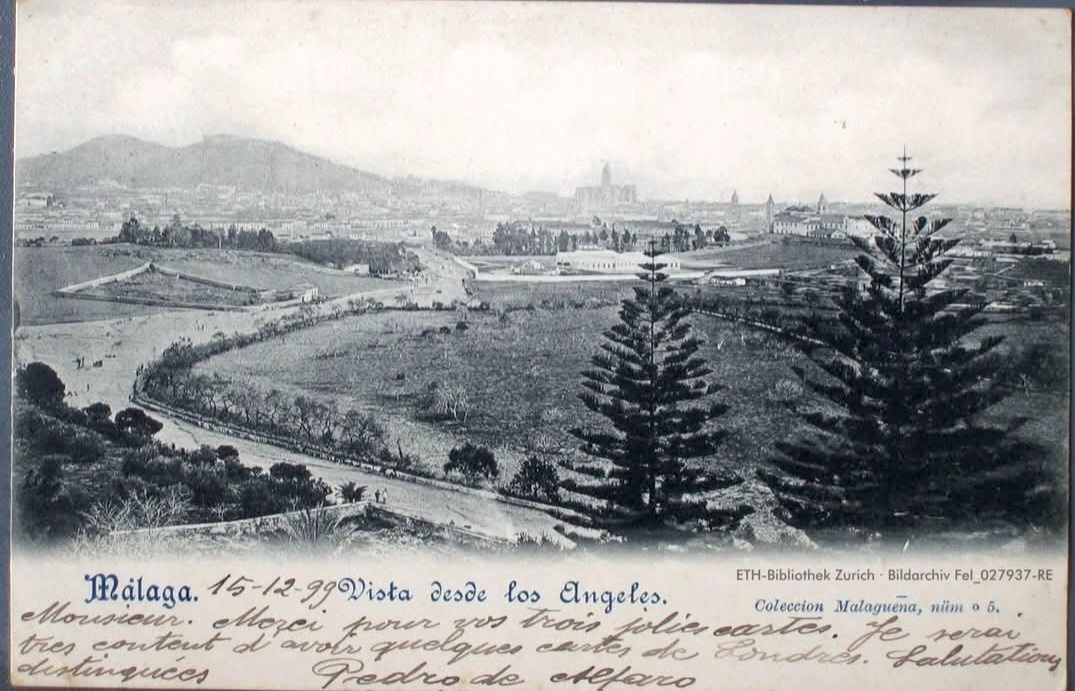 ETH-Bibliothek Zurich · Bildarchiv Fel_027937-RE
Málaga. 15-12-99 Vista desde los Angeles.
Coleccion Malagueña, núm o 5.
Monsieur. Merci pour vos trois jolies cartes. Je serai
tres content d'avoir quelques cartes de Londres. Salutations
distinguées Pedro de Alfaro